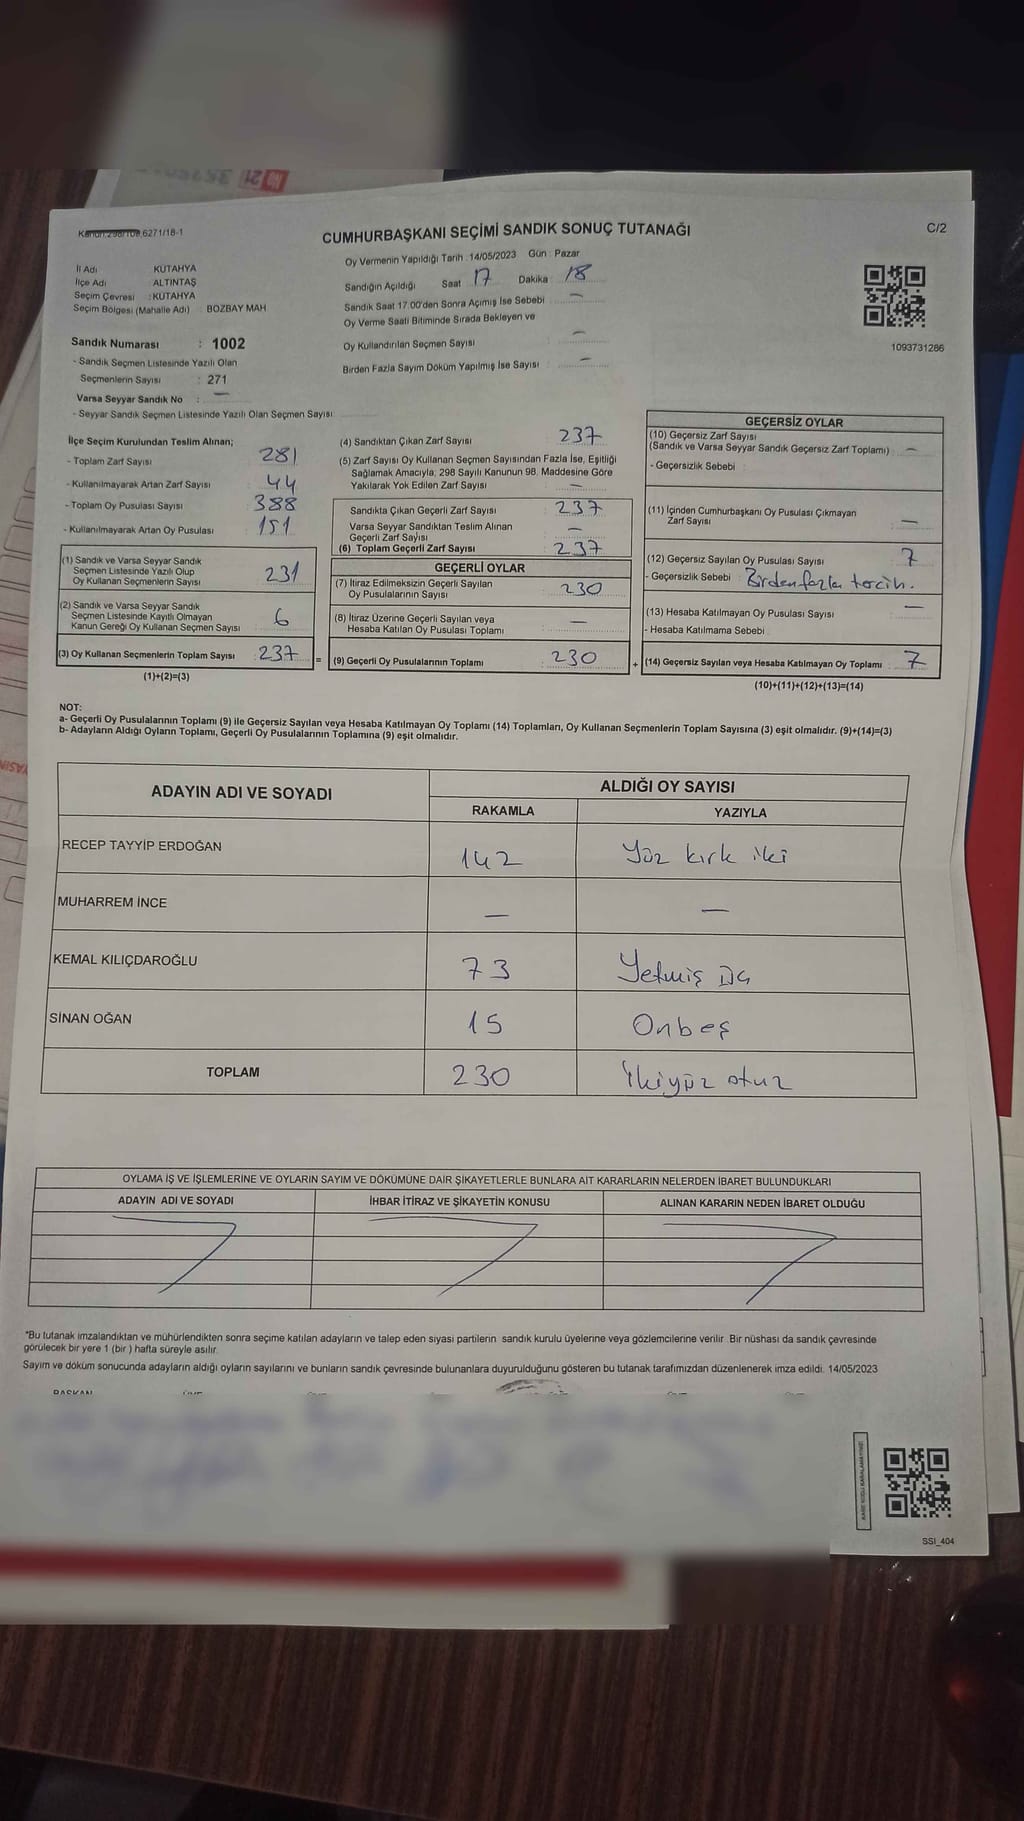 Kanun:298/108,6271/18-1
CUMHURBAŞKANI SEÇİMİ SANDIK SONUÇ TUTANAĞI
C/2
İl Adı KUTAHYA
İlçe Adı ALTINTAŞ
Seçim Çevresi : KUTAHYA
Seçim Bölgesi (Mahalle Adı) BOZBAY MAH
Oy Vermenin Yapıldığı Tarih : 14/05/2023 Gün : Pazar
Sandığın Açıldığı Saat 17 Dakika : 18
Sandık Saat 17.00'den Sonra Açımış İse Sebebi : —
Oy Verme Saati Bitiminde Sırada Bekleyen ve
Oy Kullandırılan Seçmen Sayısı : —
Birden Fazla Sayım Döküm Yapılmış İse Sayısı : —
1093731286
Sandık Numarası : 1002
- Sandık Seçmen Listesinde Yazılı Olan
Seçmenlerin Sayısı : 271
Varsa Seyyar Sandık No : —
- Seyyar Sandık Seçmen Listesinde Yazılı Olan Seçmen Sayısı :
İlçe Seçim Kurulundan Teslim Alınan;
- Toplam Zarf Sayısı 281
- Kullanılmayarak Artan Zarf Sayısı : 44
- Toplam Oy Pusulası Sayısı 388
- Kullanılmayarak Artan Oy Pusulası 151
(1) Sandık ve Varsa Seyyar Sandık
Seçmen Listesinde Yazılı Olup
Oy Kullanan Seçmenlerin Sayısı 231
(2) Sandık ve Varsa Seyyar Sandık
Seçmen Listesinde Kayıtlı Olmayan
Kanun Gereği Oy Kullanan Seçmen Sayısı 6
(3) Oy Kullanan Seçmenlerin Toplam Sayısı : 237
(1)+(2)=(3)
(4) Sandıktan Çıkan Zarf Sayısı : 237
(5) Zarf Sayısı Oy Kullanan Seçmen Sayısından Fazla İse, Eşitliği
Sağlamak Amacıyla, 298 Sayılı Kanunun 98. Maddesine Göre
Yakılarak Yok Edilen Zarf Sayısı : —
Sandıkta Çıkan Geçerli Zarf Sayısı : 237
Varsa Seyyar Sandıktan Teslim Alınan
Geçerli Zarf Sayısı : —
(6) Toplam Geçerli Zarf Sayısı : 237
GEÇERLİ OYLAR
(7) İtiraz Edilmeksizin Geçerli Sayılan
Oy Pusulalarının Sayısı : 230
(8) İtiraz Üzerine Geçerli Sayılan veya
Hesaba Katılan Oy Pusulası Toplamı : —
= (9) Geçerli Oy Pusulalarının Toplamı : 230
GEÇERSİZ OYLAR
(10) Geçersiz Zarf Sayısı
(Sandık ve Varsa Seyyar Sandık Geçersiz Zarf Toplamı) : —
- Geçersizlik Sebebi :
(11) İçinden Cumhurbaşkanı Oy Pusulası Çıkmayan
Zarf Sayısı : —
(12) Geçersiz Sayılan Oy Pusulası Sayısı : 7
- Geçersizlik Sebebi : Birden fazla tercih.
(13) Hesaba Katılmayan Oy Pusulası Sayısı : —
- Hesaba Katılmama Sebebi
+ (14) Geçersiz Sayılan veya Hesaba Katılmayan Oy Toplamı : 7
(10)+(11)+(12)+(13)=(14)
NOT:
a- Geçerli Oy Pusulalarının Toplamı (9) ile Geçersiz Sayılan veya Hesaba Katılmayan Oy Toplamı (14) Toplamları, Oy Kullanan Seçmenlerin Toplam Sayısına (3) eşit olmalıdır. (9)+(14)=(3)
b- Adayların Aldığı Oyların Toplamı, Geçerli Oy Pusulalarının Toplamına (9) eşit olmalıdır.
ADAYIN ADI VE SOYADI ALDIĞI OY SAYISI
RAKAMLA YAZIYLA
RECEP TAYYİP ERDOĞAN 142 Yüz kırk iki
MUHARREM İNCE — —
KEMAL KILIÇDAROĞLU 73 Yetmiş üç
SİNAN OĞAN 15 Onbeş
TOPLAM 230 İkiyüz otuz
OYLAMA İŞ VE İŞLEMLERİNE VE OYLARIN SAYIM VE DÖKÜMÜNE DAİR ŞİKAYETLERLE BUNLARA AİT KARARLARIN NELERDEN İBARET BULUNDUKLARI
ADAYIN ADI VE SOYADI İHBAR İTİRAZ VE ŞİKAYETİN KONUSU ALINAN KARARIN NEDEN İBARET OLDUĞU
*Bu tutanak imzalandıktan ve mühürlendikten sonra seçime katılan adayların ve talep eden siyasi partilerin sandık kurulu üyelerine veya gözlemcilerine verilir. Bir nüshası da sandık çevresinde
görülecek bir yere 1 (bir ) hafta süreyle asılır.
Sayım ve döküm sonucunda adayların aldığı oyların sayılarını ve bunların sandık çevresinde bulunanlara duyurulduğunu gösteren bu tutanak tarafımızdan düzenlenerek imza edildi. 14/05/2023
BAŞKAN
KARE KODU KARALAMAYINIZ
SSI_404